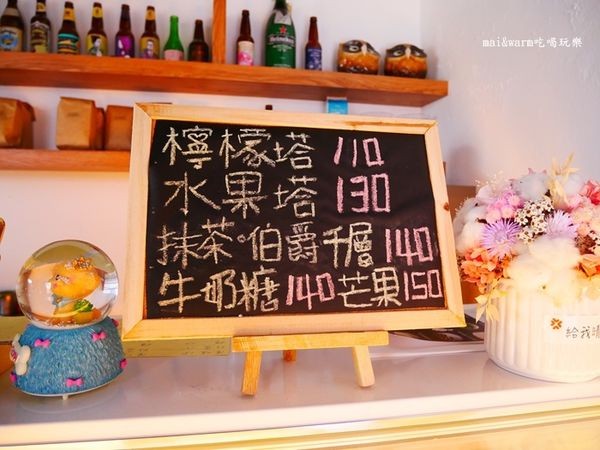 mai&warm吃喝玩樂
Heineken
檸檬塔 110
水果塔 130
抹茶·伯爵千層 140
牛奶糖 140 芒果 150
給我晴